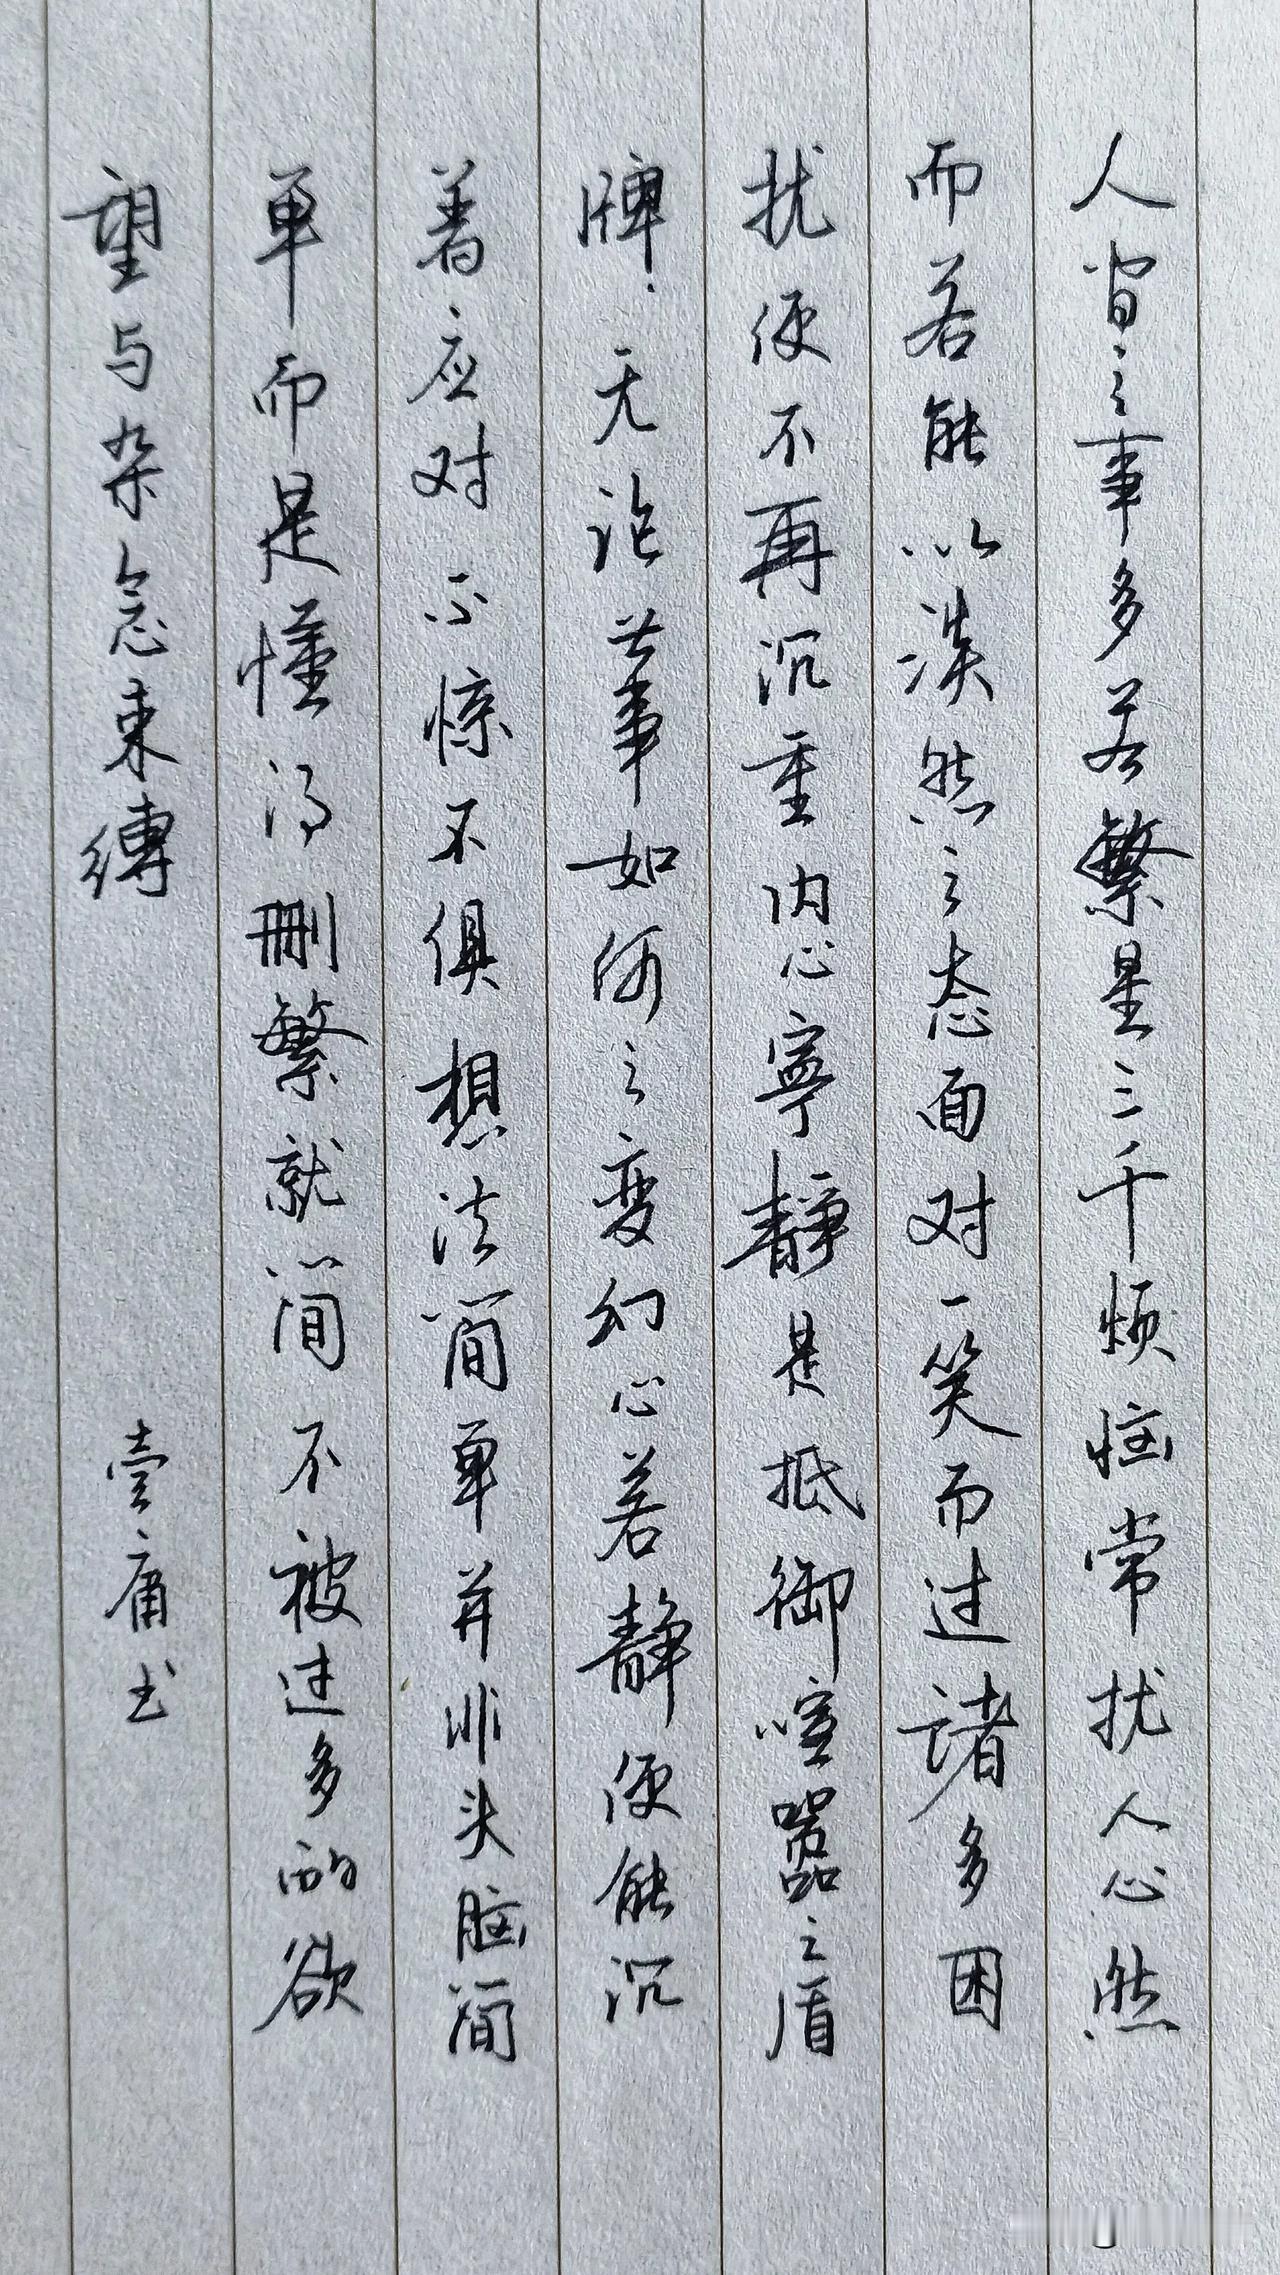 人间之事多若繁星三千烦恼常扰人心然
而若能以淡然之态面对一笑而过诸多困
扰便不再沉重内心寧静是抵御喧嚣之盾
牌无论世事如何之变幻心若静便能沉
着应对不惊不俱想法简单并非头脑简
单而是懂得删繁就简不被过多的欲
望与杂念束缚
壹庸书